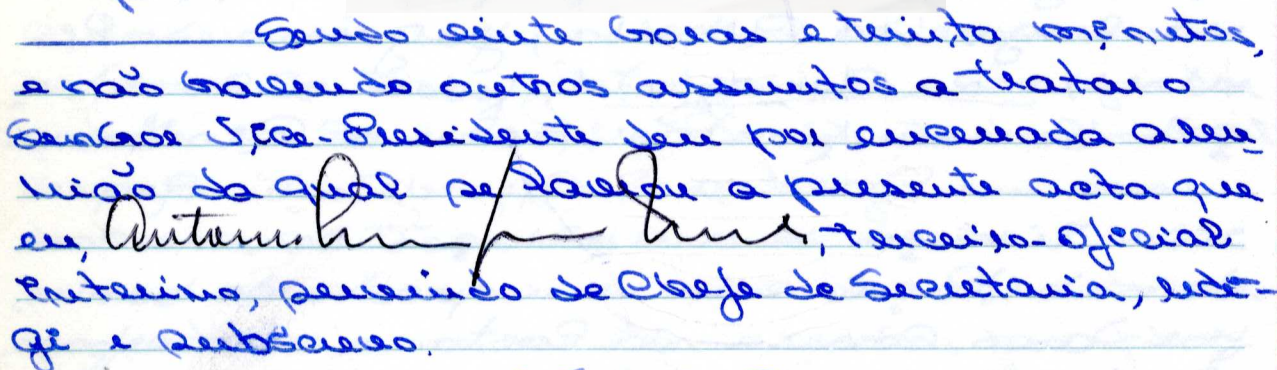 Sendo vinte horas e trinta minutos,
e não havendo outros assuntos a tratar o
Senhor Vice-Presidente deu por encerrada a reu-
nião da qual se lavrou a presente acta que
eu, António, terceiro-oficial
interino, servindo de Chefe de Secretaria, redi-
gi e subscrevo.